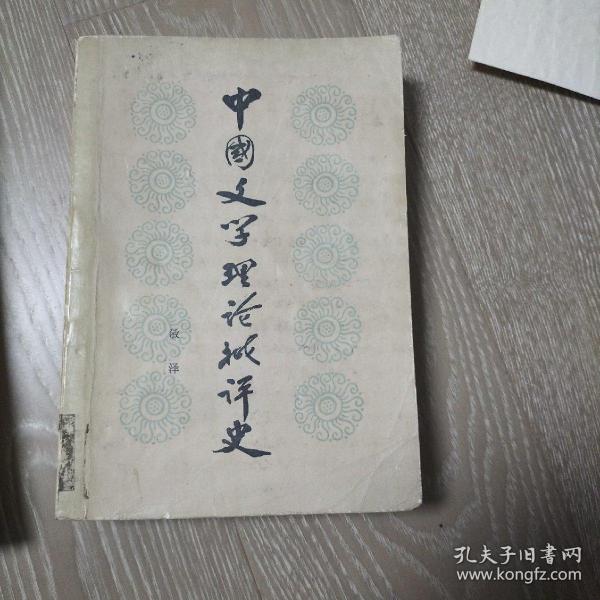 中國文学理论批评史
敏泽
孔夫子旧书网
www.kongfz.com